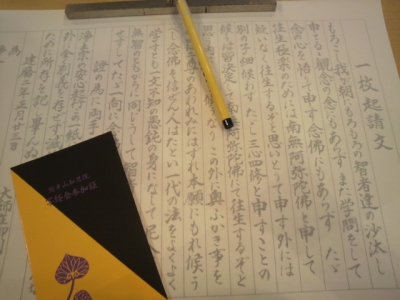 一枚起請文
もろこし我が朝にもろもろの智者達の沙汰し
申さるる観念の念にもあらず また学問をして
念の心を悟りて申す念佛にもあらず ただ
往生極楽のためには南無阿弥陀佛と申して
疑いなく往生するぞと思いとりて申す外には
別の子細候わず ただし三心四修と申すことの
候は皆決定して南無阿弥陀佛にて往生するぞと
思うこの外に奥ふかき事を
のあわれみにはずれ本願にもれ候う
べし念佛を信ぜん人はたとい一代の法をよくよく
学すとも一文不知の愚鈍の身になして尼入
無智のともがらに同じうして智者
せずしてただ一向に念佛
證の為に両手印
浄土宗の安心起行この一紙
外に全く別義を存ぜず滅
ために所存を記し畢んぬ
建暦二年正月二十三日
大師在御判